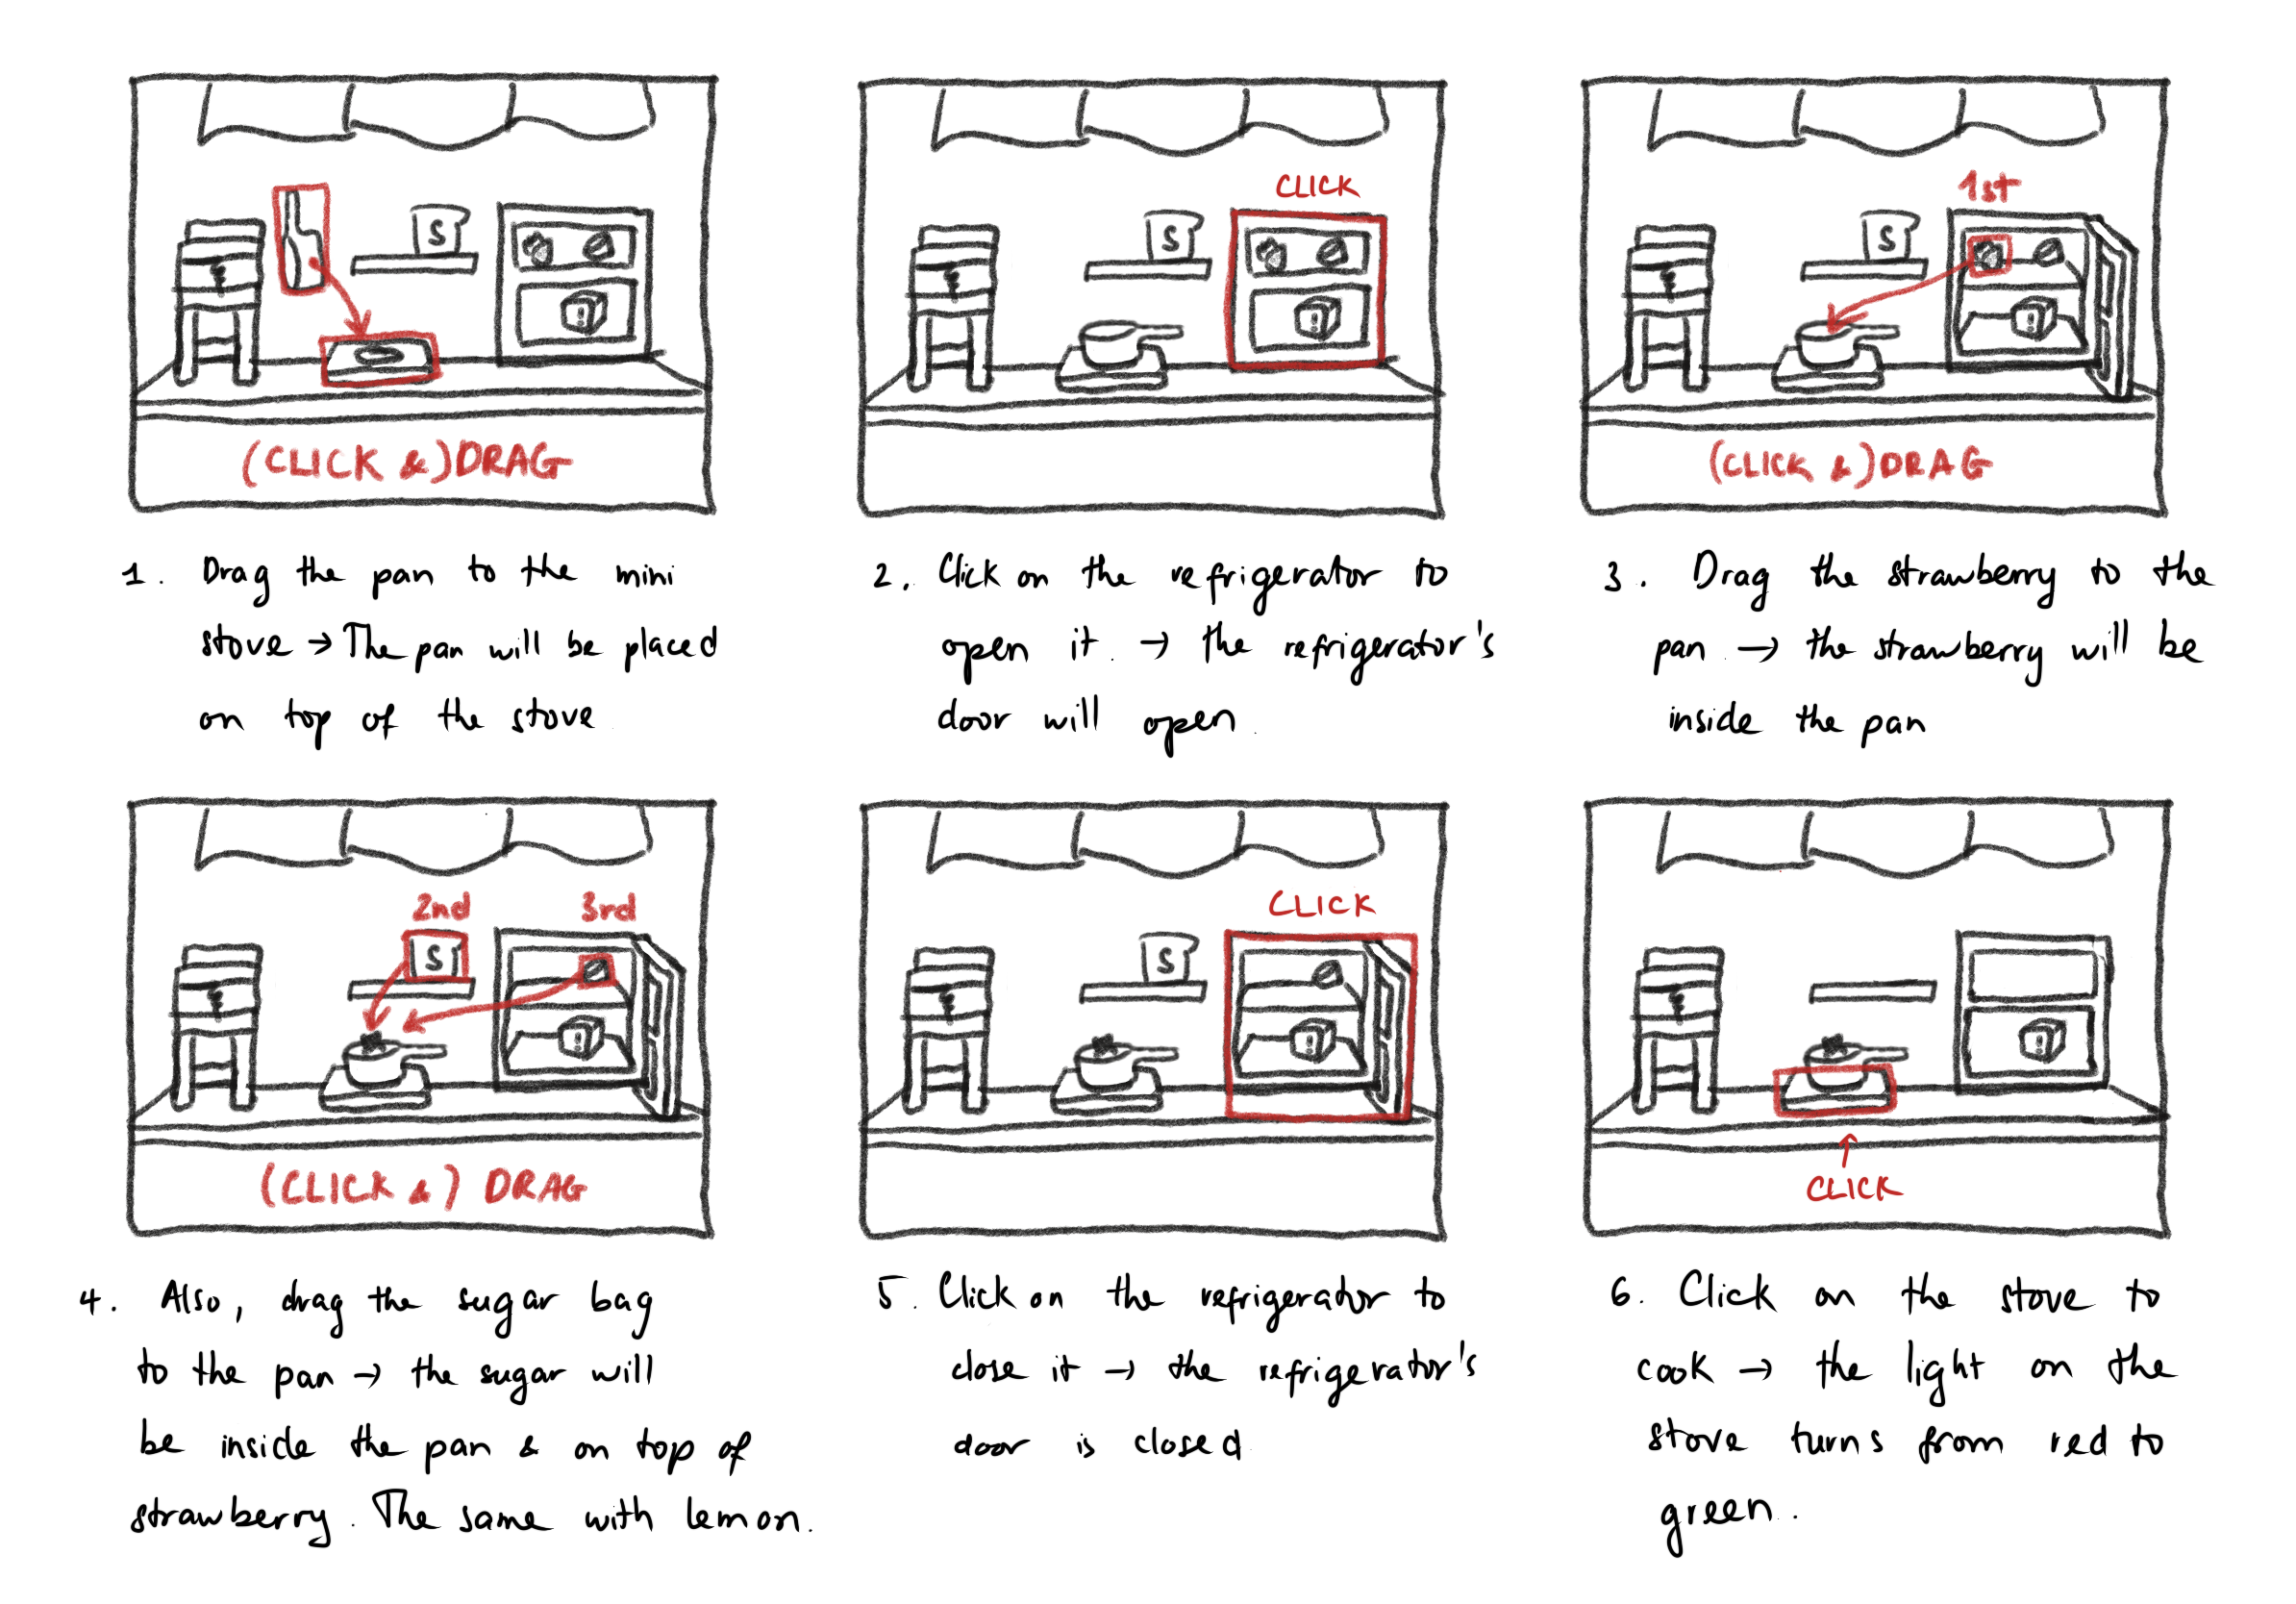 S
(CLICK &) DRAG
1. Drag the pan to the mini
stove → The pan will be placed
on top of the stove.
CLICK
S
2. Click on the refrigerator to
open it. → the refrigerator's
door will open.
1st
S
(CLICK &) DRAG
3. Drag the strawberry to the
pan → the strawberry will be
inside the pan
2nd 3rd
S
(CLICK &) DRAG
4. Also, drag the sugar bag
to the pan → the sugar will
be inside the pan & on top of
strawberry. The same with lemon.
CLICK
S
5. Click on the refrigerator to
close it → the refrigerator's
door is closed
CLICK
6. Click on the stove to
cook → the light on the
stove turns from red to
green.